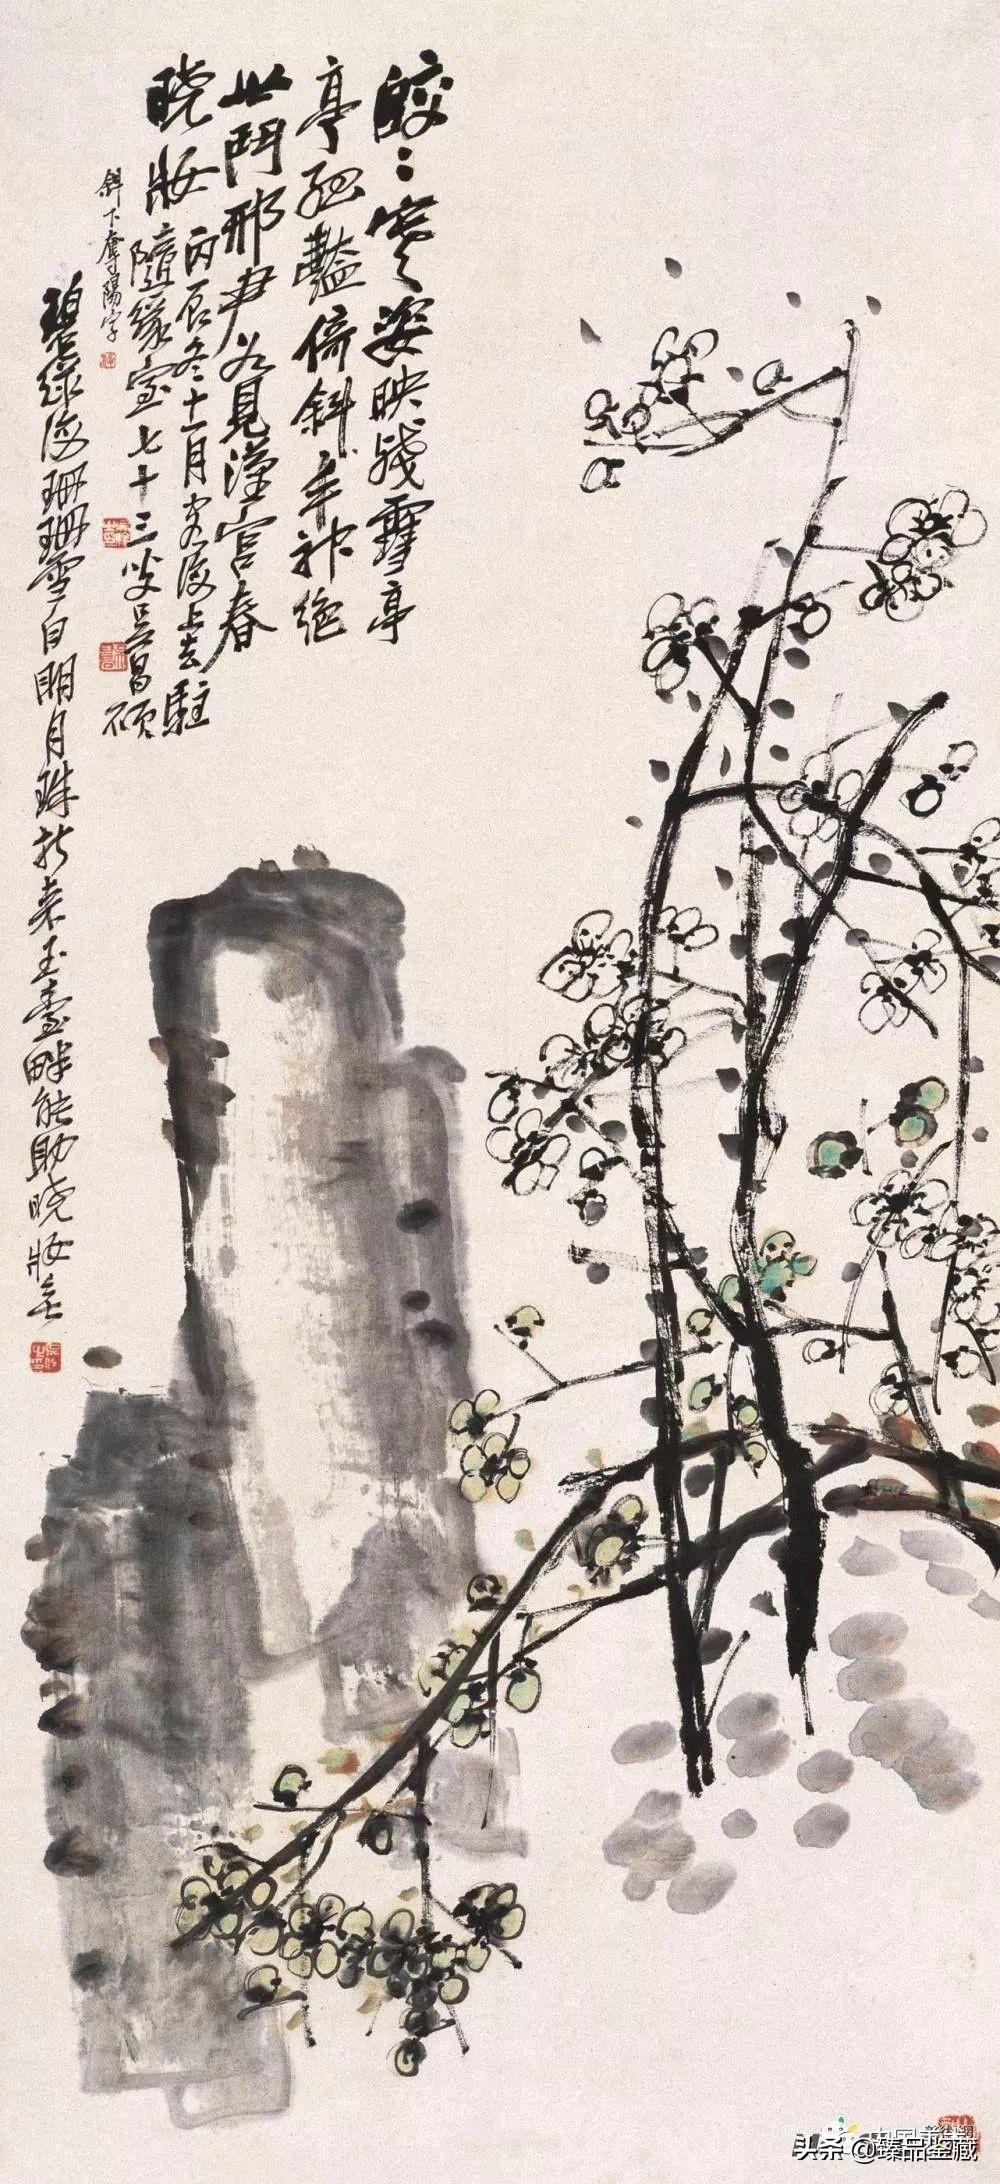 皎〻寒姿映殘雪亭
亭孤豔倚斜丰神絕
世鬥邢尹如見漢宮春
曉妝
丙辰冬十一月客滬上去駐
隨緣室七十三叟吳昌碩
斜下奪陽字
碧綠海珊珊雪白明月珠折來玉臺畔能助曉妝無
头条 @臻品鉴藏